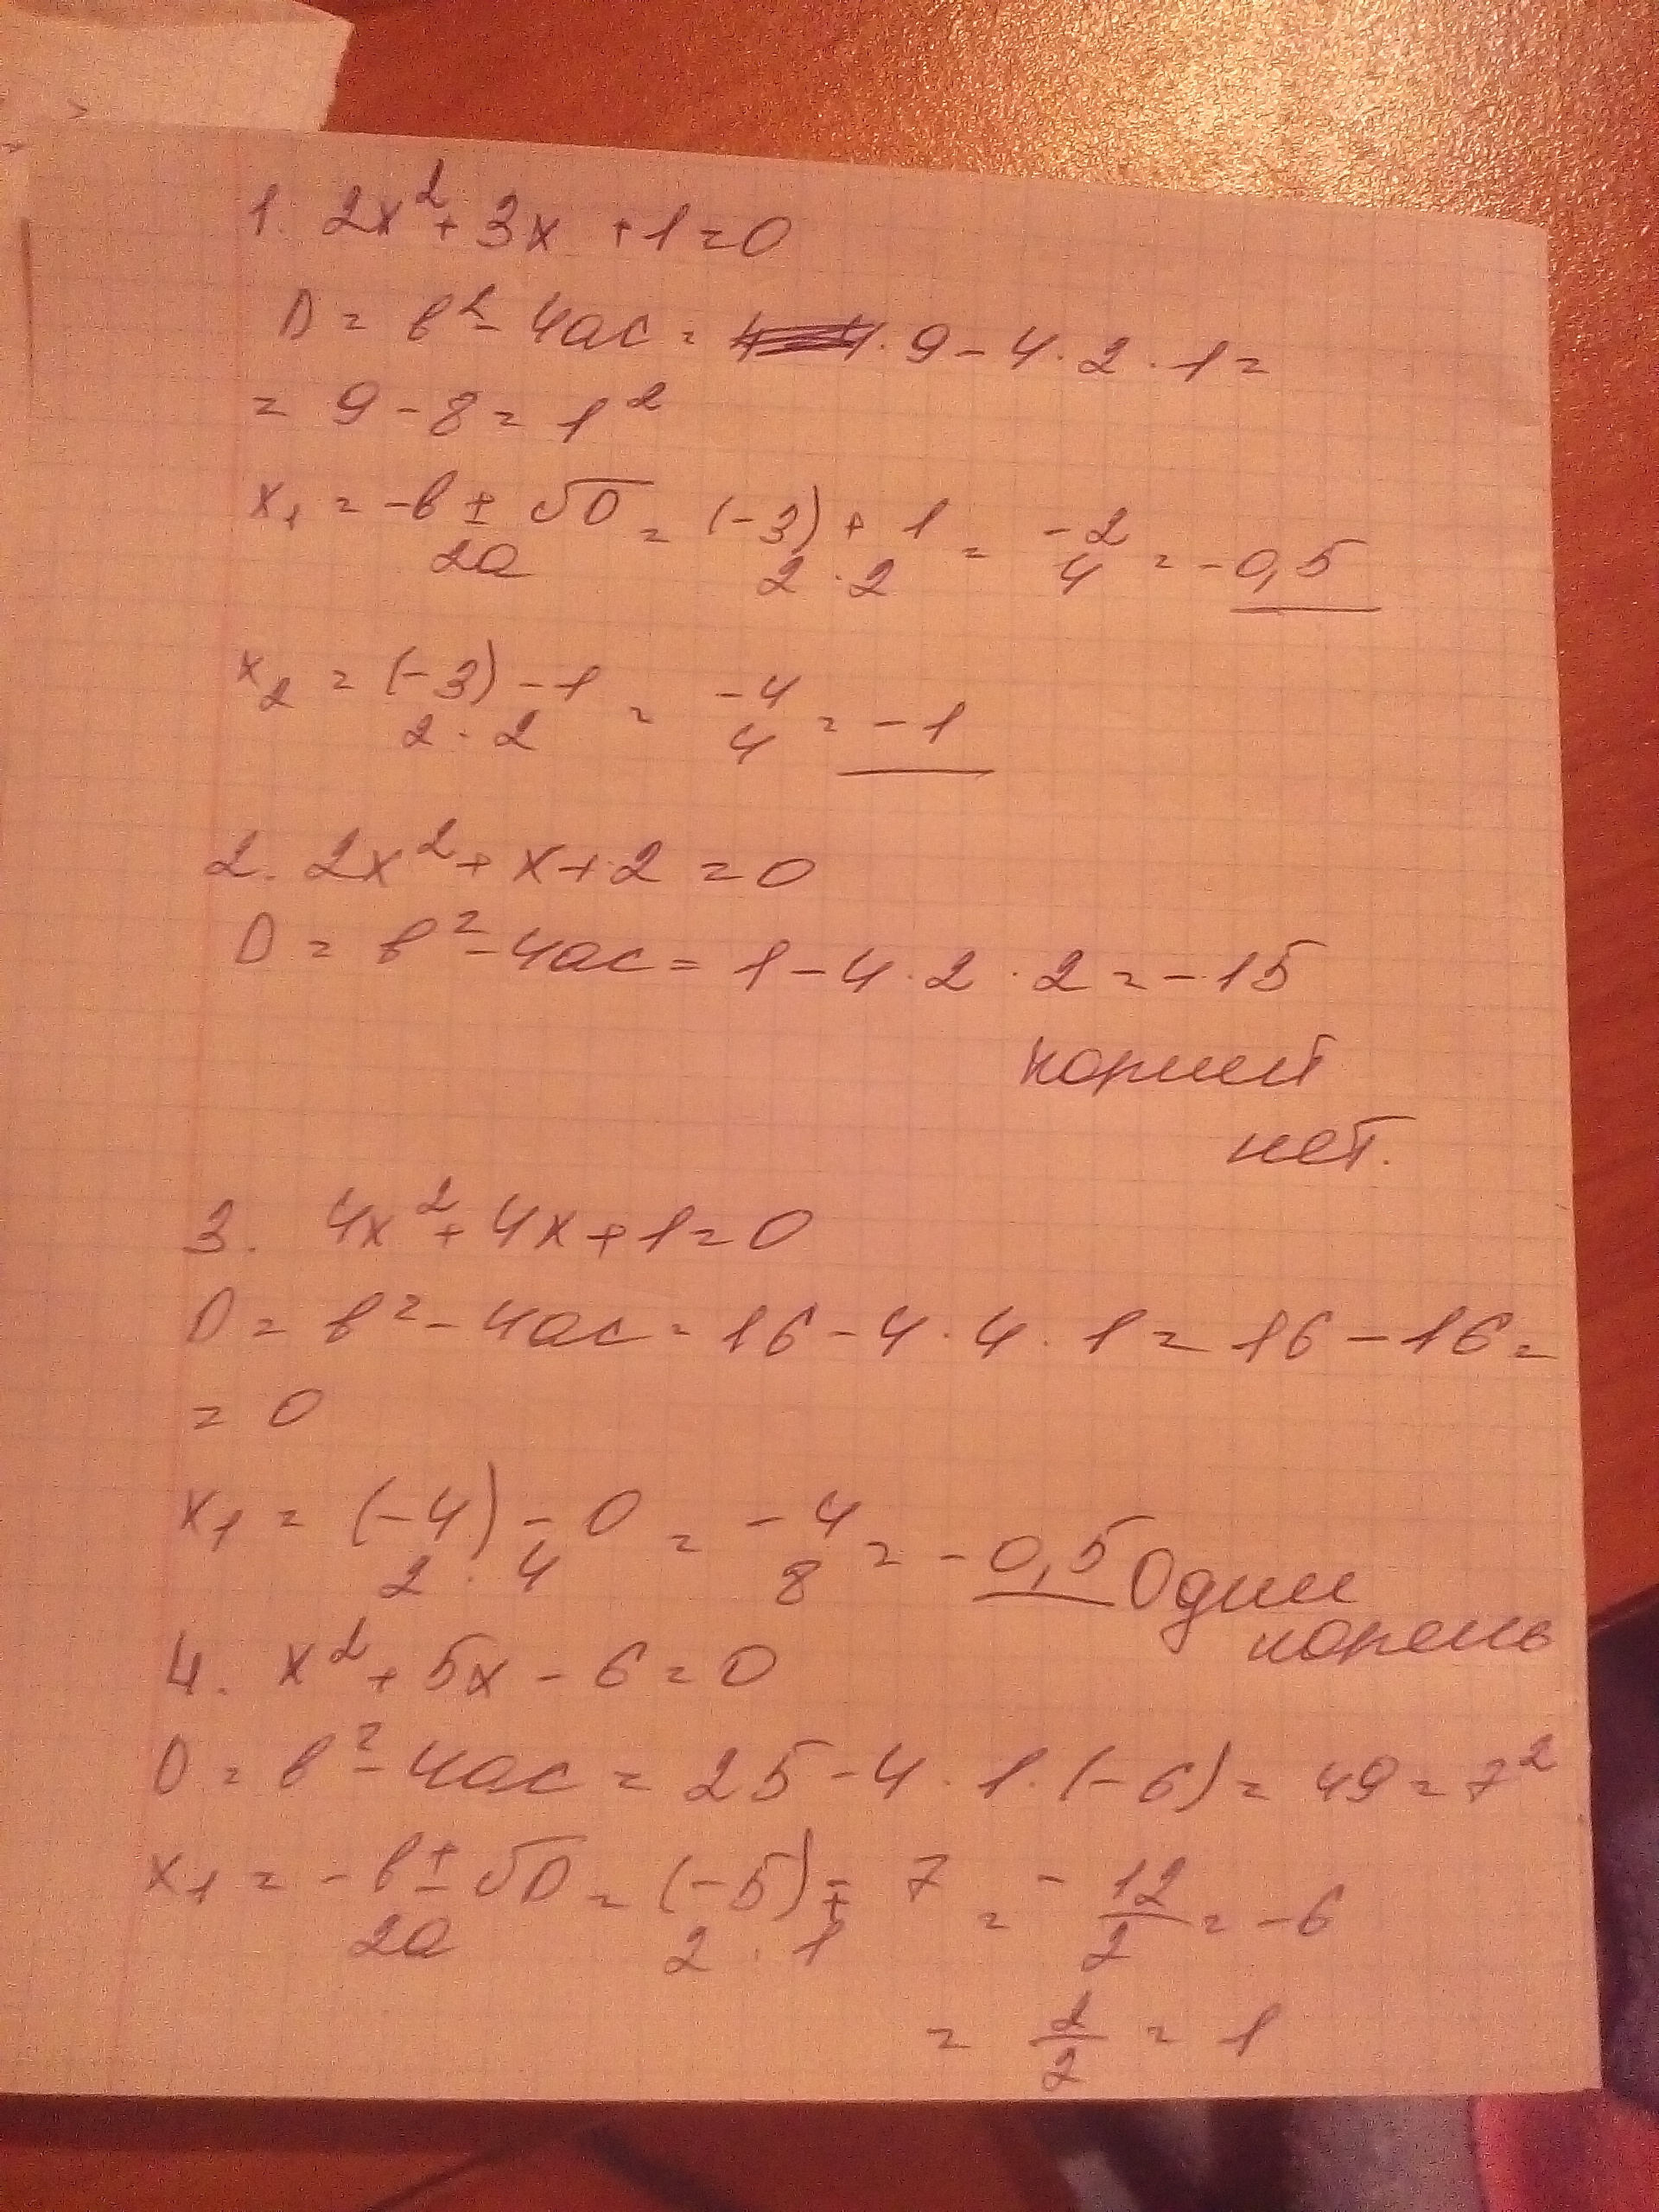 1. 2x² + 3x + 1 = 0
D = b² - 4ac = 9 - 4 · 2 · 1 =
= 9 - 8 = 1²
x₁ = -b ± √D / 2a = (-3) + 1 / 2 · 2 = -2 / 4 = -0,5
x₂ = (-3) - 1 / 2 · 2 = -4 / 4 = -1
2. 2x² + x + 2 = 0
D = b² - 4ac = 1 - 4 · 2 · 2 = -15
корней
нет.
3. 4x² + 4x + 1 = 0
D = b² - 4ac = 16 - 4 · 4 · 1 = 16 - 16 =
= 0
x₁ = (-4) - 0 / 2 · 4 = -4 / 8 = -0,5 Один
корень
4. x² + 5x - 6 = 0
D = b² - 4ac = 25 - 4 · 1 · (-6) = 49 = 7²
x₁ = -b ± √D / 2a = (-5) ∓ 7 / 2 · 1 = -12 / 2 = -6
= 2 / 2 = 1